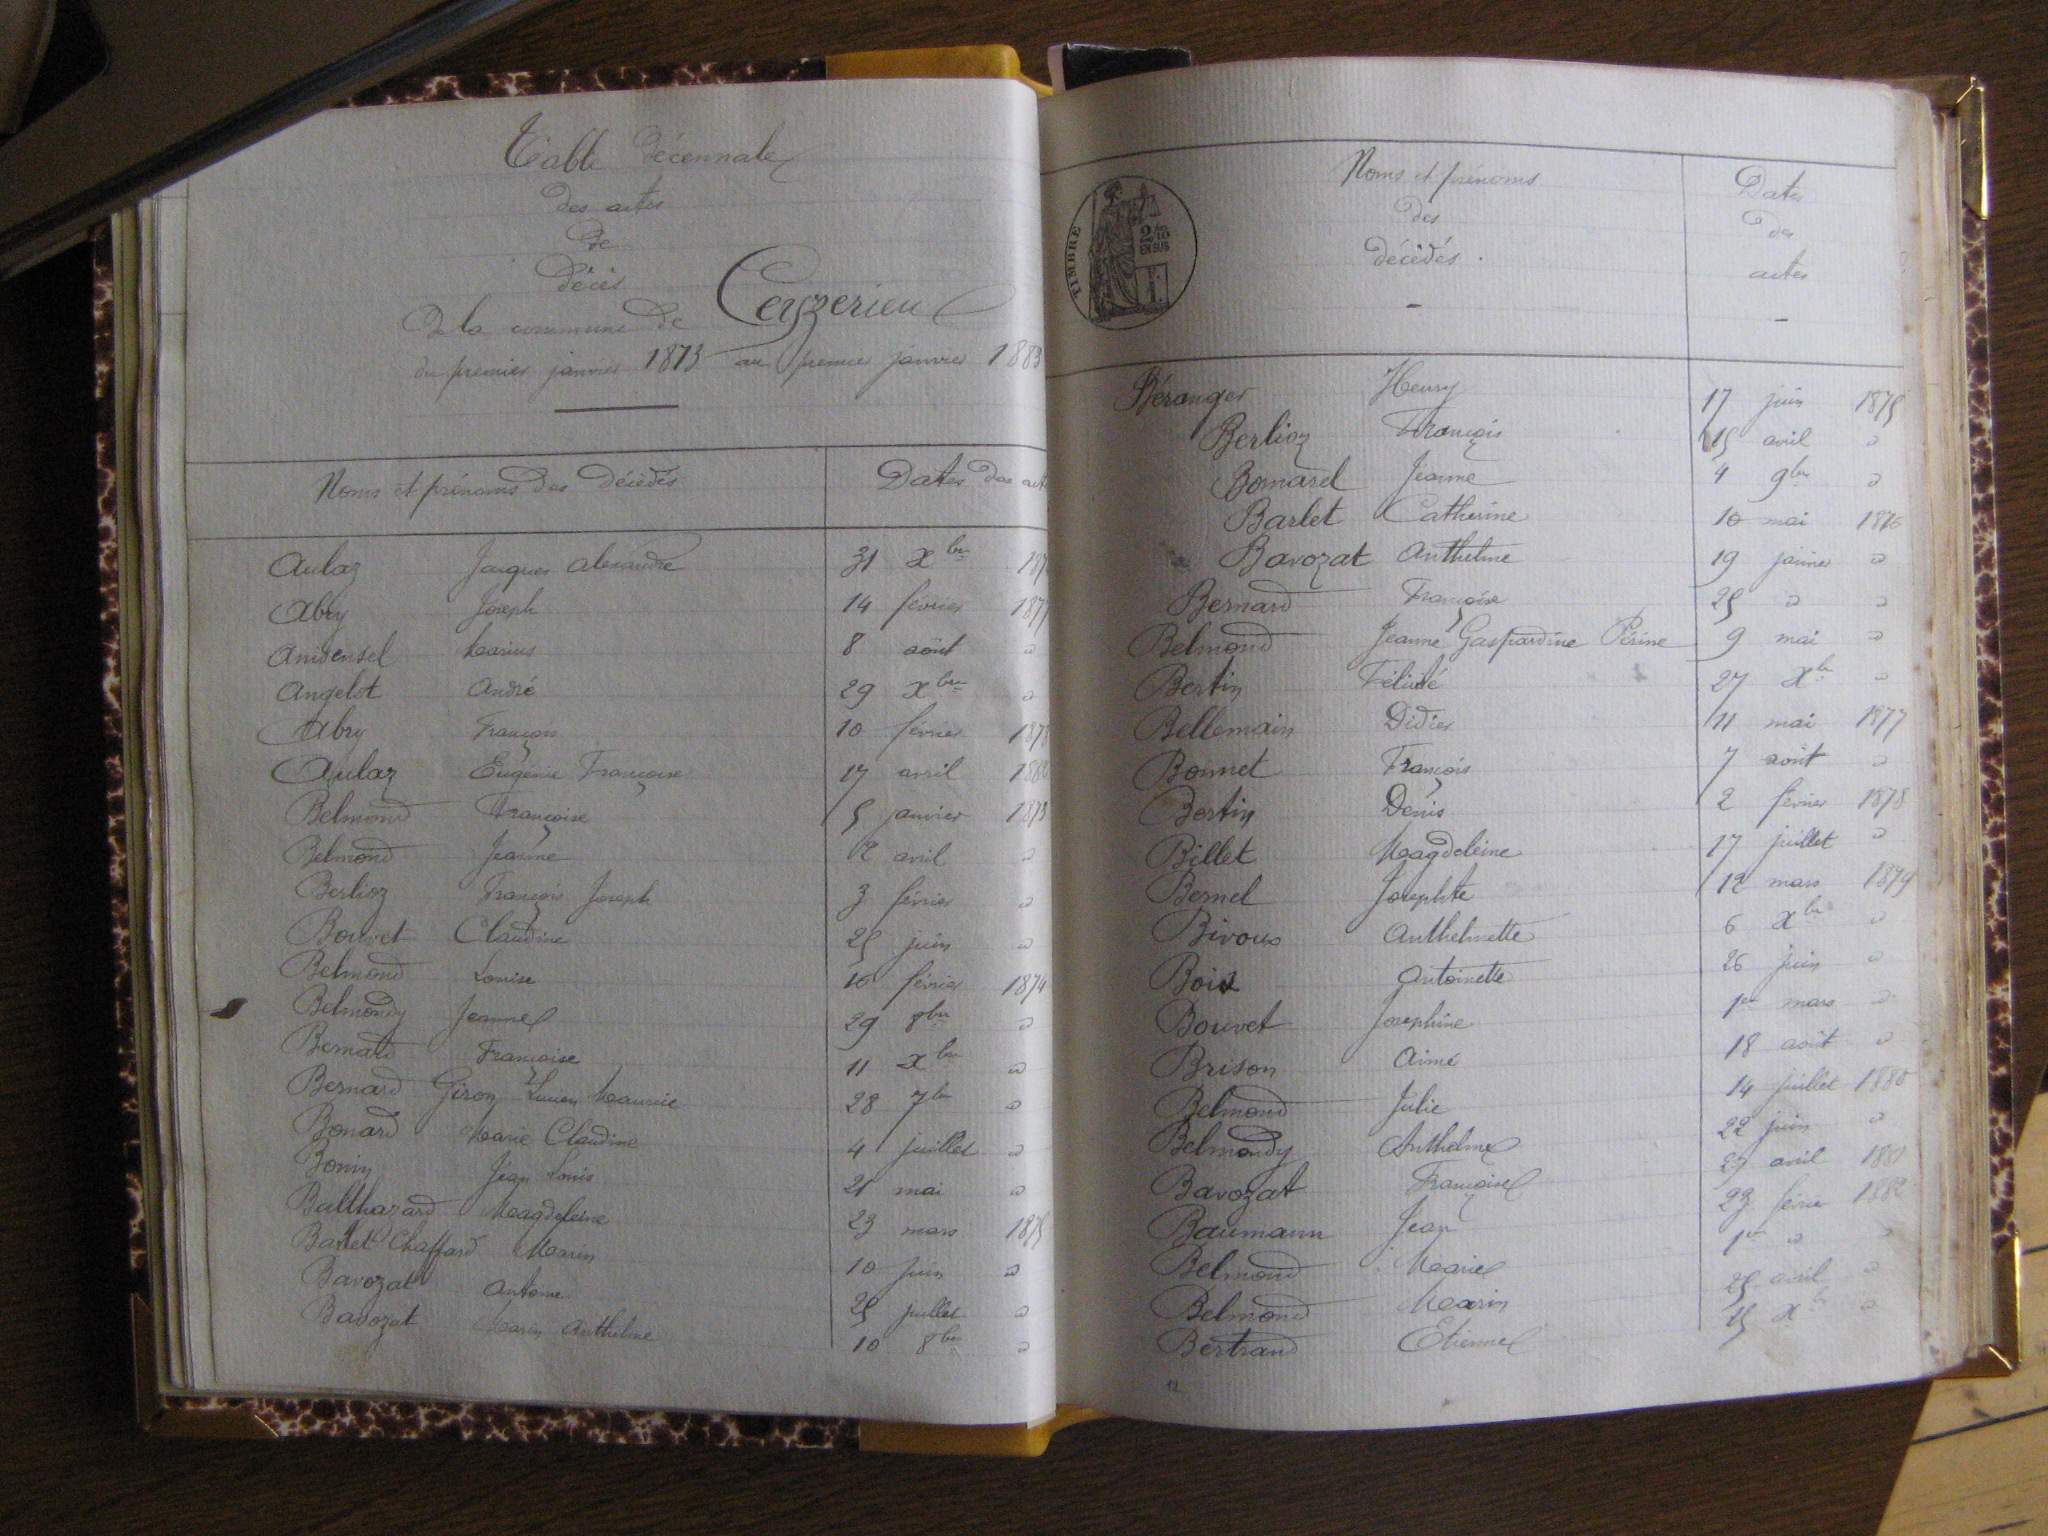 Table décennale
des actes
de
décès
De la commune de Ceyzerieu
du premier janvier 1873 au premier janvier 1883
Noms et prénoms des décédés Dates des
Aulaz Jacques alexandre 31 Xbre
Abry Joseph 14 février 1877
Anidensel Marius 8 août "
Angelot André 29 Xbre "
Abry François 10 février 1878
Aulaz Eugénie Françoise 17 avril
Belmond Françoise 5 janvier 1873
Belmond Jeanne 2 avril "
Berlioz François Joseph 3 février "
Bouvet Claudine 25 juin "
Belmond Louise 16 février 1874
Belmondy Jeanne 29 8bre "
Bernard Françoise 11 Xbre "
Bernard Giron Lucien Maurice 28 7bre "
Bonard Marie Claudine 4 juillet "
Bonin Jean Louis 21 mai "
Balthazard Magdeleine 23 mars 1875
Barlet Chaffard Marin 10 juin "
Bavozat Antoine 25 juillet "
Bavozat Marin Anthelme 10 8bre "
TIMBRE
2/10
EN SUS
Noms et prénoms
des
décédés.
-
Dates
des
actes
-
Béranger Henry 17 juin 1875
Berlioz François 15 avril "
Bomarel Jeanne 4 9bre "
Barlet Catherine 10 mai 1876
Bavozat Anthelme 19 janvier "
Bernard Françoise 25 " "
Belmond Jeanne Gaspardine Périne 9 mai "
Bertin Félicité 27 Xbre "
Bellemain Didier 11 mai 1877
Bonnet François 7 août "
Bertin Denis 2 février 1878
Billet Magdeleine 17 juillet "
Bernel Josephte 12 mars 1879
Bivoux Anthelmette 6 Xbre "
Bois Antoinette 26 juin "
Bouvet Josephine 1er mars "
Brison Aimé 18 août "
Belmond Julie 14 juillet 1880
Belmondy Anthelme 22 juin "
Bavozat Françoise avril 1881
Baumann Jean 23 février 1882
Belmond Marie 1er " "
Belmond Marin 25 avril "
Bertrand Etienne 15 Xbre "
12